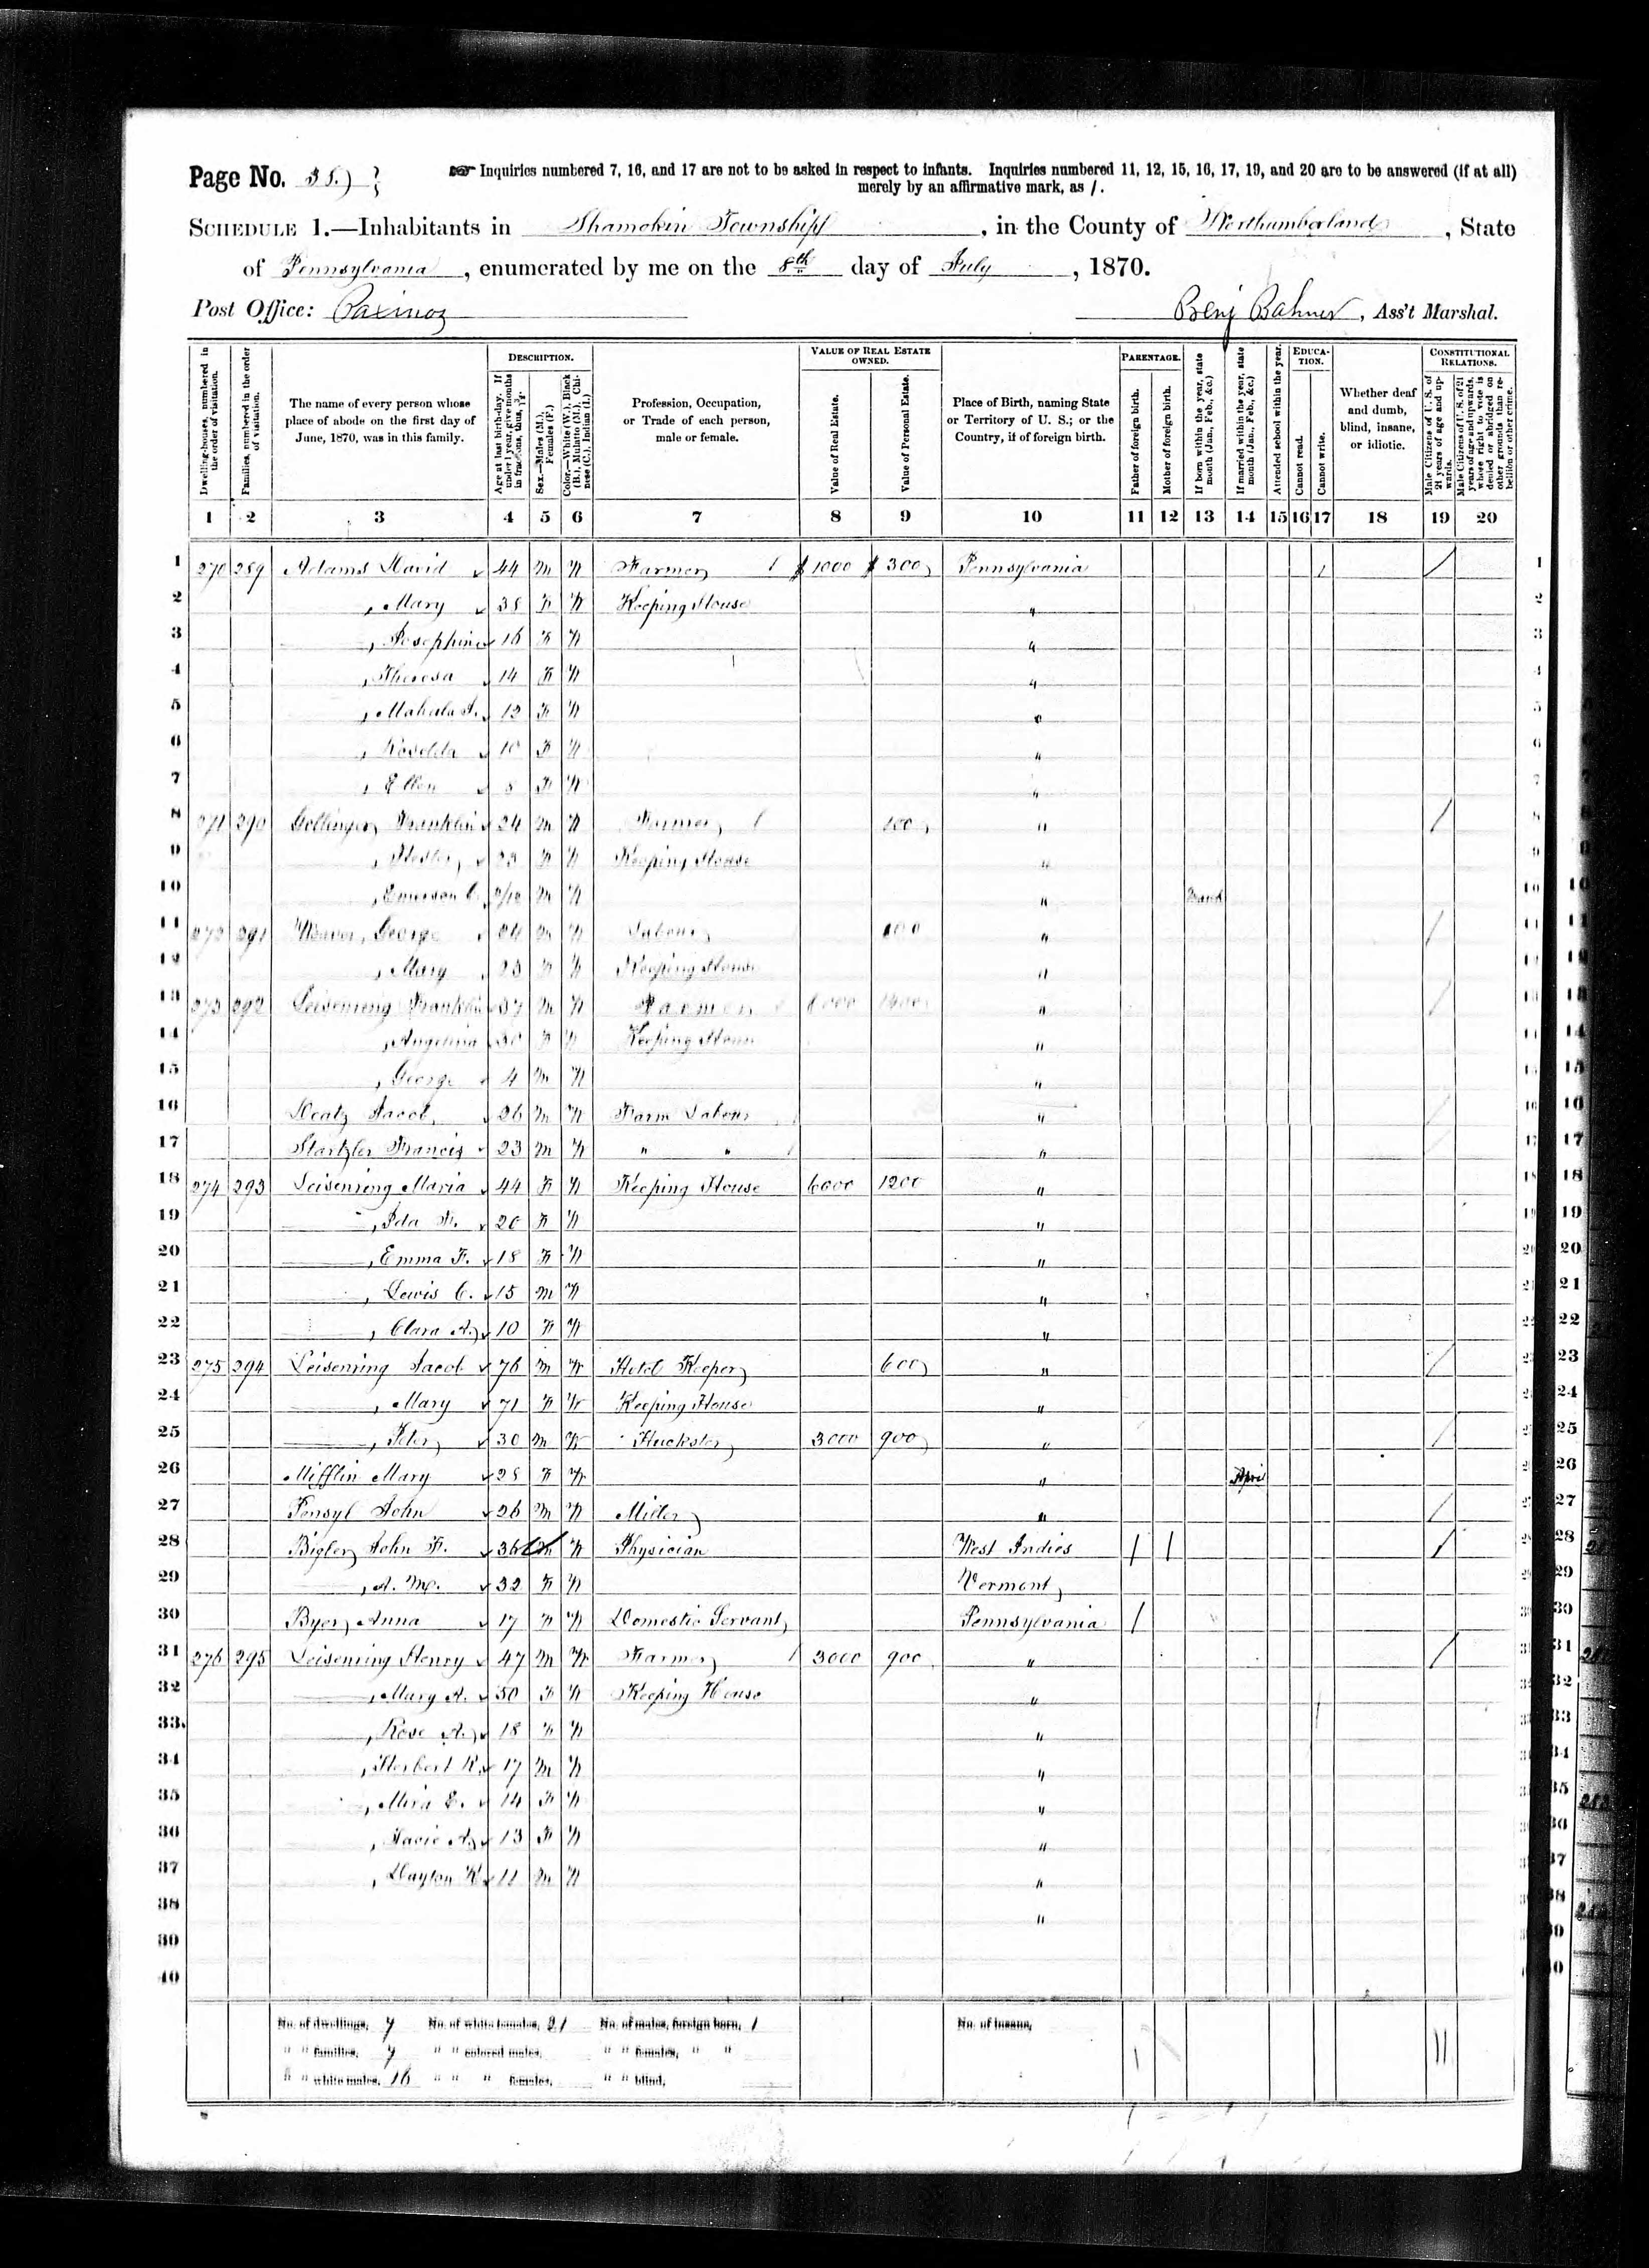 Page No. 38.)
☞ Inquiries numbered 7, 16, and 17 are not to be asked in respect to infants. Inquiries numbered 11, 12, 15, 16, 17, 19, and 20 are to be answered (if at all)
merely by an affirmative mark, as /.
SCHEDULE 1.—Inhabitants in Shamokin Township, in the County of Northumberland, State
of Pennsylvania, enumerated by me on the 8th day of July, 1870.
Post Office: Paxinos
Benj Bahner, Ass't Marshal.
Dwelling-houses, numbered in the order of visitation.
Families, numbered in the order of visitation.
The name of every person whose place of abode on the first day of June, 1870, was in this family.
DESCRIPTION.
Age at last birth-day. If under 1 year, give months in fractions, thus, 3/12.
Sex.—Males (M.), Females (F.)
Color.—White (W.), Black (B.), Mulatto (M.), Chinese (C.), Indian (I.)
Profession, Occupation, or Trade of each person, male or female.
VALUE OF REAL ESTATE OWNED.
Value of Real Estate.
Value of Personal Estate.
Place of Birth, naming State or Territory of U. S.; or the Country, if of foreign birth.
PARENTAGE.
Father of foreign birth.
Mother of foreign birth.
If born within the year, state month (Jan., Feb., &c.)
If married within the year, state month (Jan., Feb., &c.)
Attended school within the year.
EDUCATION.
Cannot read.
Cannot write.
Whether deaf and dumb, blind, insane, or idiotic.
CONSTITUTIONAL RELATIONS.
Male Citizens of U. S. of 21 years of age and upwards.
Male Citizens of U. S. of 21 years of age and upwards, whose right to vote is denied or abridged on other grounds than rebellion or other crime.
1 2 3 4 5 6 7 8 9 10 11 12 13 14 15 16 17 18 19 20
1 270 289 Adams David 44 M W Farmer $1000 $300 Pennsylvania / / 1
2 , Mary 38 F W Keeping House " 2
3 , Josephine 16 F W " 3
4 , Theresa 14 F W " 4
5 , Mahala 12 F W " 5
6 , 10 F W " 6
7 , Ellen 8 F W " 7
8 271 290 Franklin 24 M W Farmer 100 " / 8
9 , Hester 23 F W Keeping House " 9
10 , Emerson C. 3/12 M W " March 10
11 272 291 Weaver, George 24 M W Labour 100 " / 11
12 , Mary 23 F W Keeping House " 12
13 273 292 Leisenring Franklin 37 M W Farmer " / 13
14 , Angelina 30 F W Keeping House " 14
15 , George 4 M W " 15
16 Jacob 26 M W Farm Labour " / 16
17 Startzler Francis 23 M W " " " / 17
18 274 293 Leisenring Maria 44 F W Keeping House 6000 1200 " 18
19 , Ida F. 20 F W " 19
20 , Emma F. 18 F W " 20
21 , Lewis C. 15 M W " 21
22 , Clara A. 10 F W " 22
23 275 294 Leisenring Jacob 76 M W Hotel Keeper 600 " / 23
24 , Mary 71 F W Keeping House " 24
25 , Peter 30 M W Huckster 3000 900 " / 25
26 Mifflin Mary 28 F W " April 26
27 Pensyl John 26 M W Miller " / 27
28 Bigler John F. 36 M W Physician West Indies / / / 28
29 , A. 32 F W Vermont 29
30 Byer Anna 17 F W Domestic Servant Pennsylvania / 30
31 276 295 Leisenring Henry 47 M W Farmer 3000 900 " / 31
32 , Mary A. 50 F W Keeping House " 32
33. , Rose A. 18 F W " 33
34 , Herbert 17 M W " 34
35 , Mira E. 14 F W " 35
36 , 13 F W " 36
37 , Dayton 11 M W " 37
38 " 38
39
40
No. of dwellings, 7 No. of white females, 21 No. of males, foreign born, 1 No. of insane,
" " families, 7 " " colored males, " " females, " "
" " white males, 16 " " " females, " " blind,